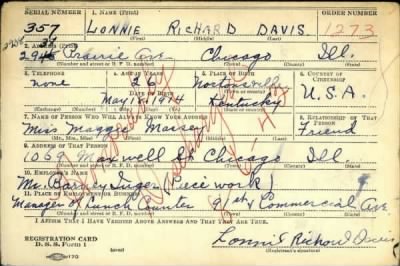 SERIAL NUMBER 1. NAME (Print) ORDER NUMBER
357 LONNIE RICHARD DAVIS 273
(First) (Middle) (Last)
2. ADDRESS (Print)
Prairie Ave Chicago Ill.
(Number and street or R. F. D. number) (Town) (County) (State)
3. TELEPHONE 4. AGE IN YEARS 5. PLACE OF BIRTH 6. COUNTRY OF CITIZENSHIP
none 26 Nortonville
DATE OF BIRTH (Town or county)
May 15, 1914 Kentucky U.S.A.
(Exchange) (Number) (Mo.) (Day) (Yr.) (State or country)
7. NAME OF PERSON WHO WILL ALWAYS KNOW YOUR ADDRESS 8. RELATIONSHIP OF THAT PERSON
Miss Maggie Friend
(Mr., Mrs., Miss) (First) (Middle) (Last)
9. ADDRESS OF THAT PERSON
Maxwell St Chicago Ill.
(Number and street or R. F. D. number) (Town) (County) (State)
10. EMPLOYER'S NAME
Mr. (Piece work)
11. PLACE OF EMPLOYMENT OR BUSINESS
Manager of Lunch Counter 91st Commercial Ave
(Number and street or R. F. D. number) (Town) (County) (State)
I AFFIRM THAT I HAVE VERIFIED ABOVE ANSWERS AND THAT THEY ARE TRUE.
REGISTRATION CARD
D. S. S. Form 1 Lonnie Richard Davis